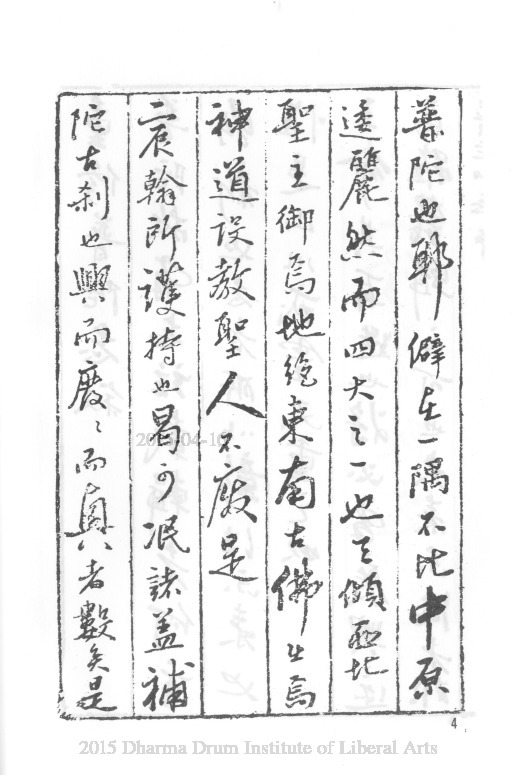 普陀也耶僻在一隅不比中原
逶麗然而四大之一也天傾西北
聖主御焉地絶東南古佛生焉
神道設教聖人不廢是
宸翰所護持也曷可泯諸蓋補
陀古刹也興而廢廢而真者數矣是
4
2015-04-10
2015 Dharma Drum Institute of Liberal Arts